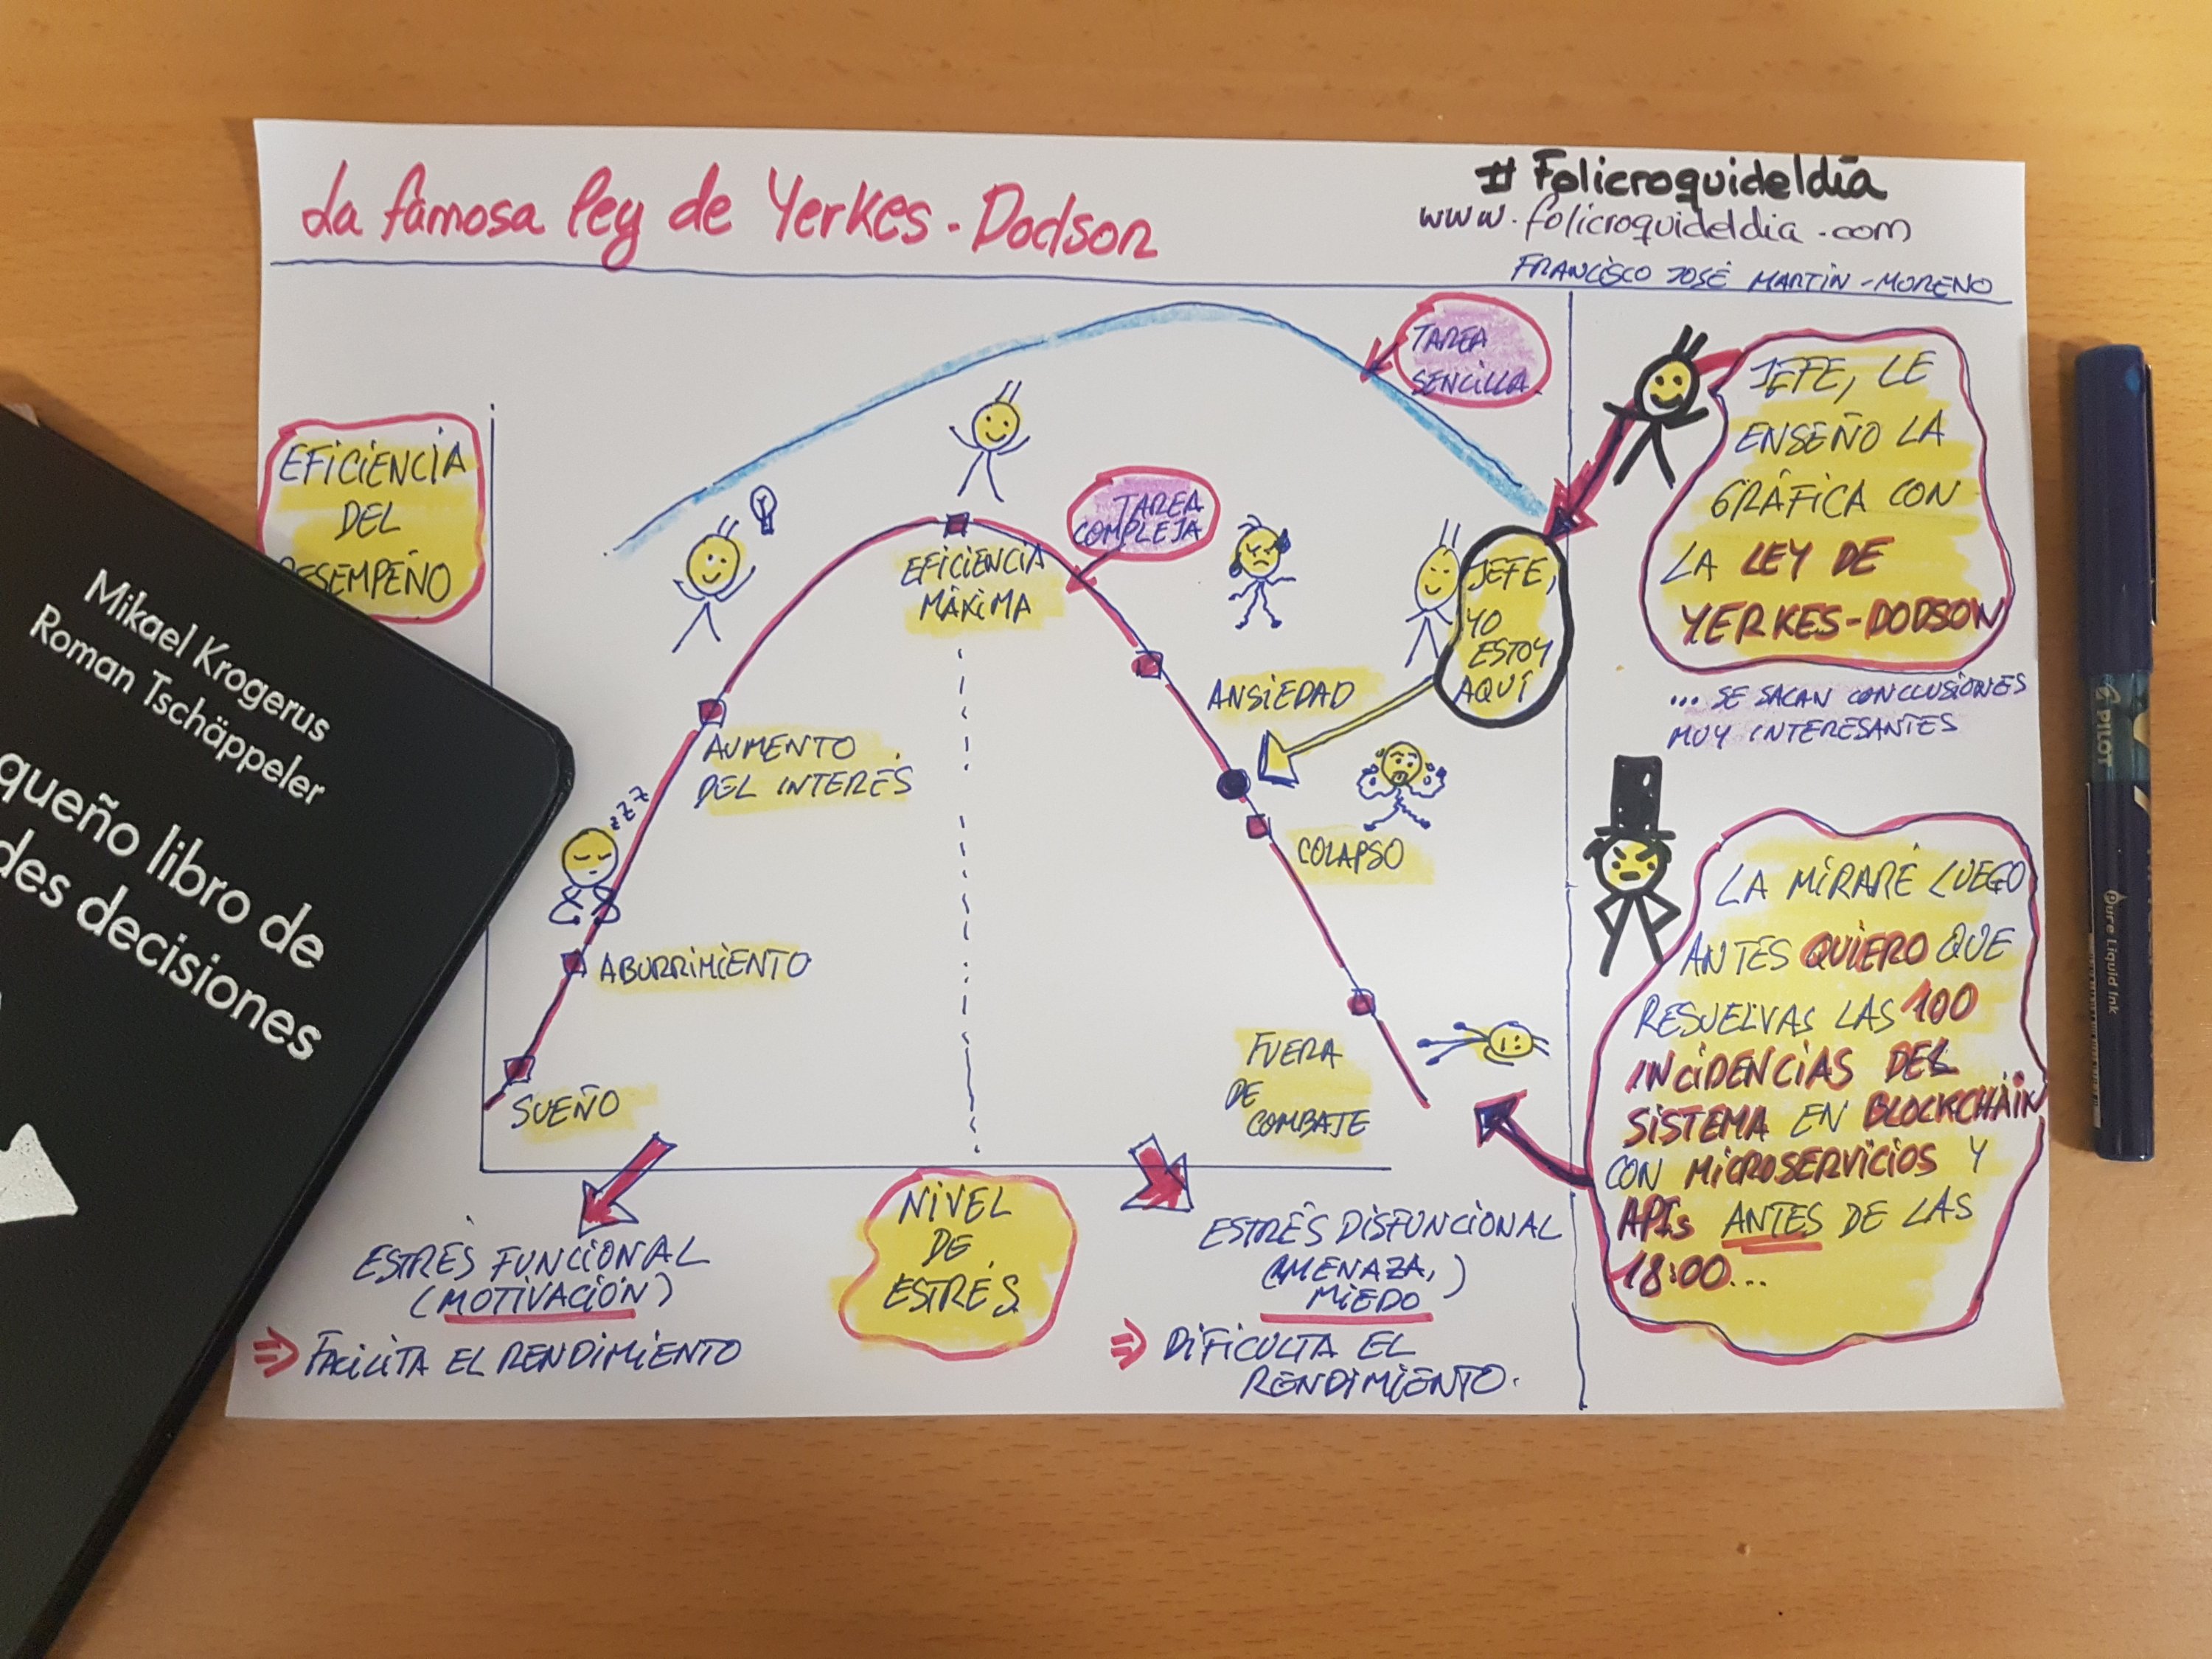 La famosa ley de Yerkes-Dodson
#Folicroquideldia
www.folicroquideldia.com
FRANCISCO JOSÉ MARTÍN-MORENO
EFICIENCIA
DEL
DESEMPEÑO
TAREA
SENCILLA
TAREA
COMPLEJA
EFICIENCIA
MÁXIMA
AUMENTO
DEL INTERÉS
zzz
ABURRIMIENTO
SUEÑO
ANSIEDAD
JEFE,
YO
ESTOY
AQUÍ
COLAPSO
FUERA
DE
COMBATE
NIVEL
DE
ESTRÉS
ESTRÉS FUNCIONAL
(MOTIVACIÓN)
⇒ FACILITA EL RENDIMIENTO
ESTRÉS DISFUNCIONAL
(AMENAZA,)
MIEDO
⇒ DIFICULTA EL
RENDIMIENTO.
JEFE, LE
ENSEÑO LA
GRÁFICA CON
LA LEY DE
YERKES-DODSON
... SE SACAN CONCLUSIONES
MUY INTERESANTES
LA MIRARÉ LUEGO
ANTES QUIERO QUE
RESUELVAS LAS 100
INCIDENCIAS DEL
SISTEMA EN BLOCKCHAIN
CON MICROSERVICIOS Y
APIs ANTES DE LAS
18:00...
Mikael Krogerus
Roman Tschäppeler
queño libro de
des decisiones
PILOT
V7
Pure Liquid Ink